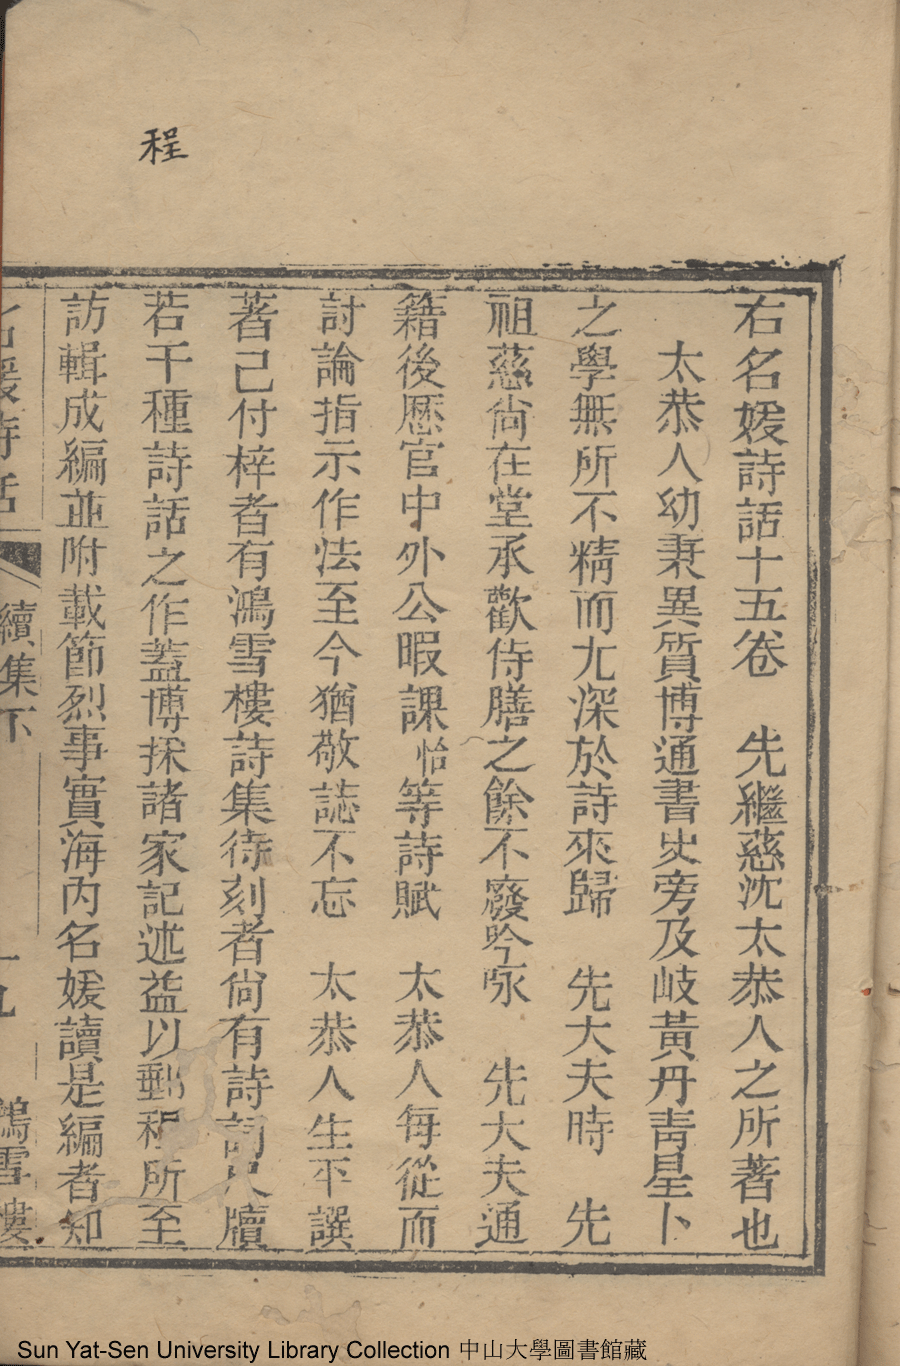 程
右名媛詩話十五卷　先繼慈沈太恭人之所著也
太恭人幼秉異質博通書史旁及岐黃丹靑星卜
之學無所不精而尤深於詩來歸　先大夫時　先
祖慈尙在堂承歡侍膳之餘不廢吟咏　先大夫通
籍後歷官中外公暇課怡等詩賦　太恭人每從而
討論指示作法至今猶敬誌不忘　太恭人生平譔
著己付梓者有鴻雪樓詩集待刻者尙有詩詞尺牘
若干種詩話之作蓋博採諸家記述益以郵程所至
訪輯成編並附載節烈事實海內名媛讀是編者知
名媛詩話　續集下　十九　鴻雪樓
Sun Yat-Sen University Library Collection 中山大學圖書館藏